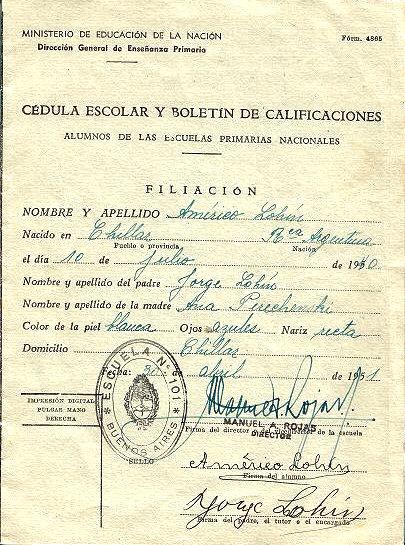 MINISTERIO DE EDUCACIÓN DE LA NACIÓN
Dirección General de Enseñanza Primaria
Fórm. 4865
CÉDULA ESCOLAR Y BOLETÍN DE CALIFICACIONES
ALUMNOS DE LAS ESCUELAS PRIMARIAS NACIONALES
FILIACIÓN
NOMBRE Y APELLIDO Américo Lohin
Nacido en Chillar Rca Argentina
Pueblo o provincia Nación
el día 10 de Julio de 1940
Nombre y apellido del padre Jorge Lohin
Nombre y apellido de la madre Ana
Color de la piel blanca Ojos azules Nariz recta
Domicilio Chillar
abril de 1951
ESCUELA N° 101
BUENOS AIRES
SELLO
IMPRESIÓN DIGITAL
PULGAR MANO
DERECHA
Manuel Rojas
MANUEL A. ROJAS
DIRECTOR
Firma del director o del de la escuela
Américo Lohin
Firma del alumno
Jorge Lohin
Firma del padre, el tutor o el encargado